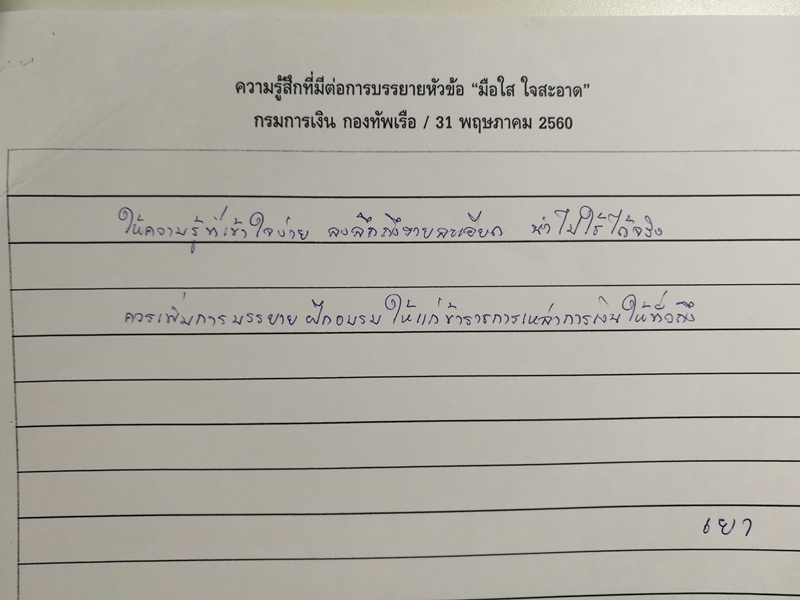 ความรู้สึกที่มีต่อการบรรยายหัวข้อ “มือใส ใจสะอาด”
กรมการเงิน กองทัพเรือ / 31 พฤษภาคม 2560
ให้ความรู้ที่เข้าใจง่าย ลงลึกถึงรายละเอียด นำไปใช้ได้จริง
ควรเพิ่มการบรรยาย ฝึกอบรม ให้แก่ข้าราชการเหล่าการเงินให้ทั่วถึง
เยา